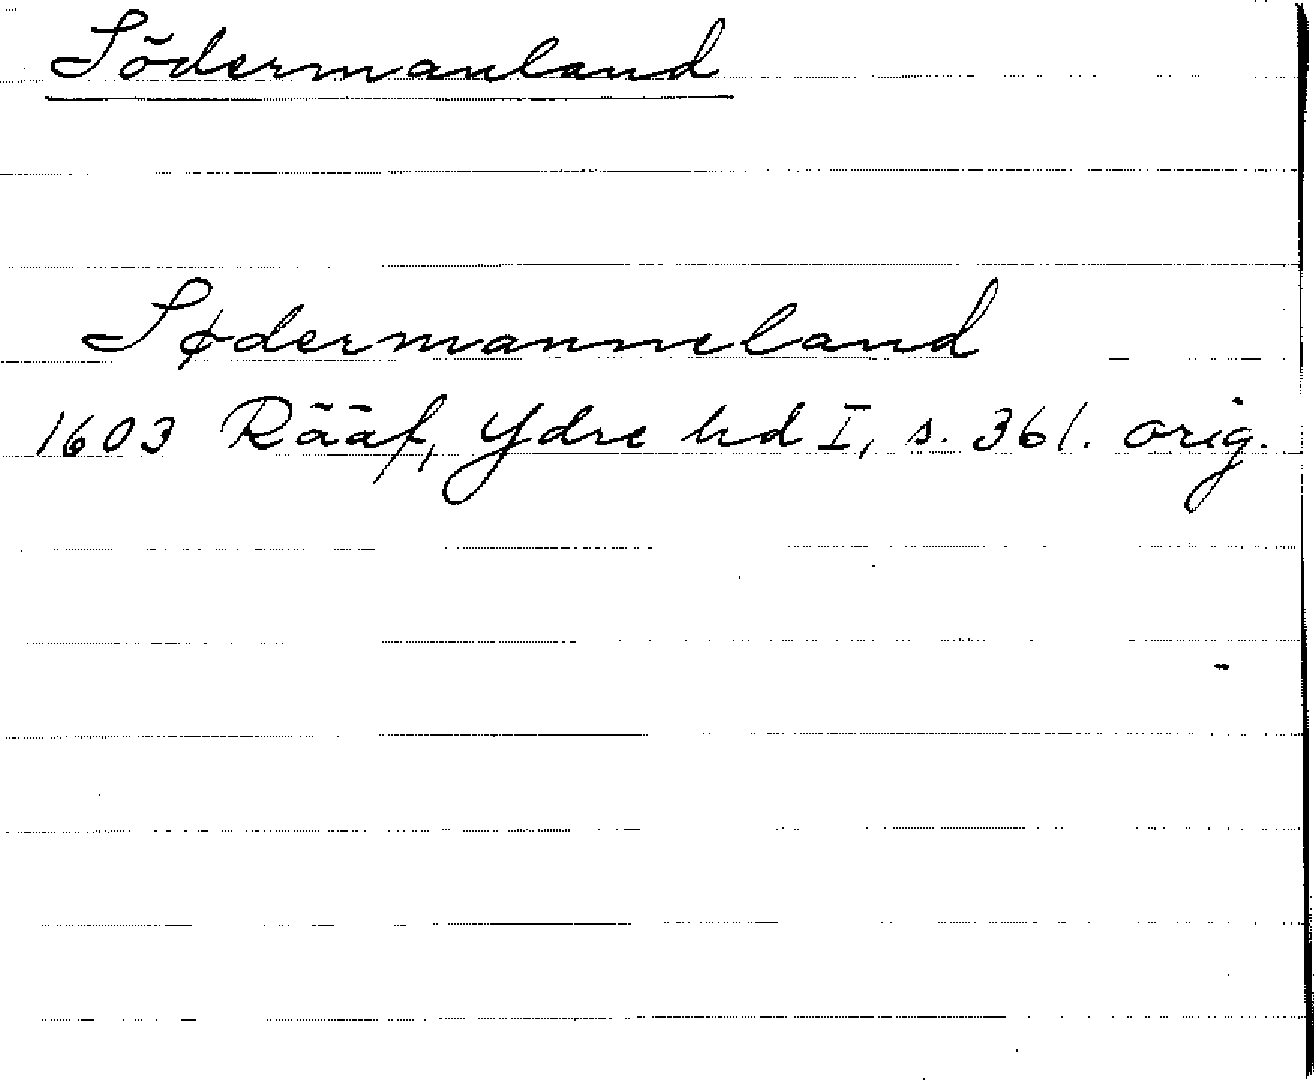 Södermanland
Sødermanneland
1603 Rääf, Ydre hd I, s. 361. orig.